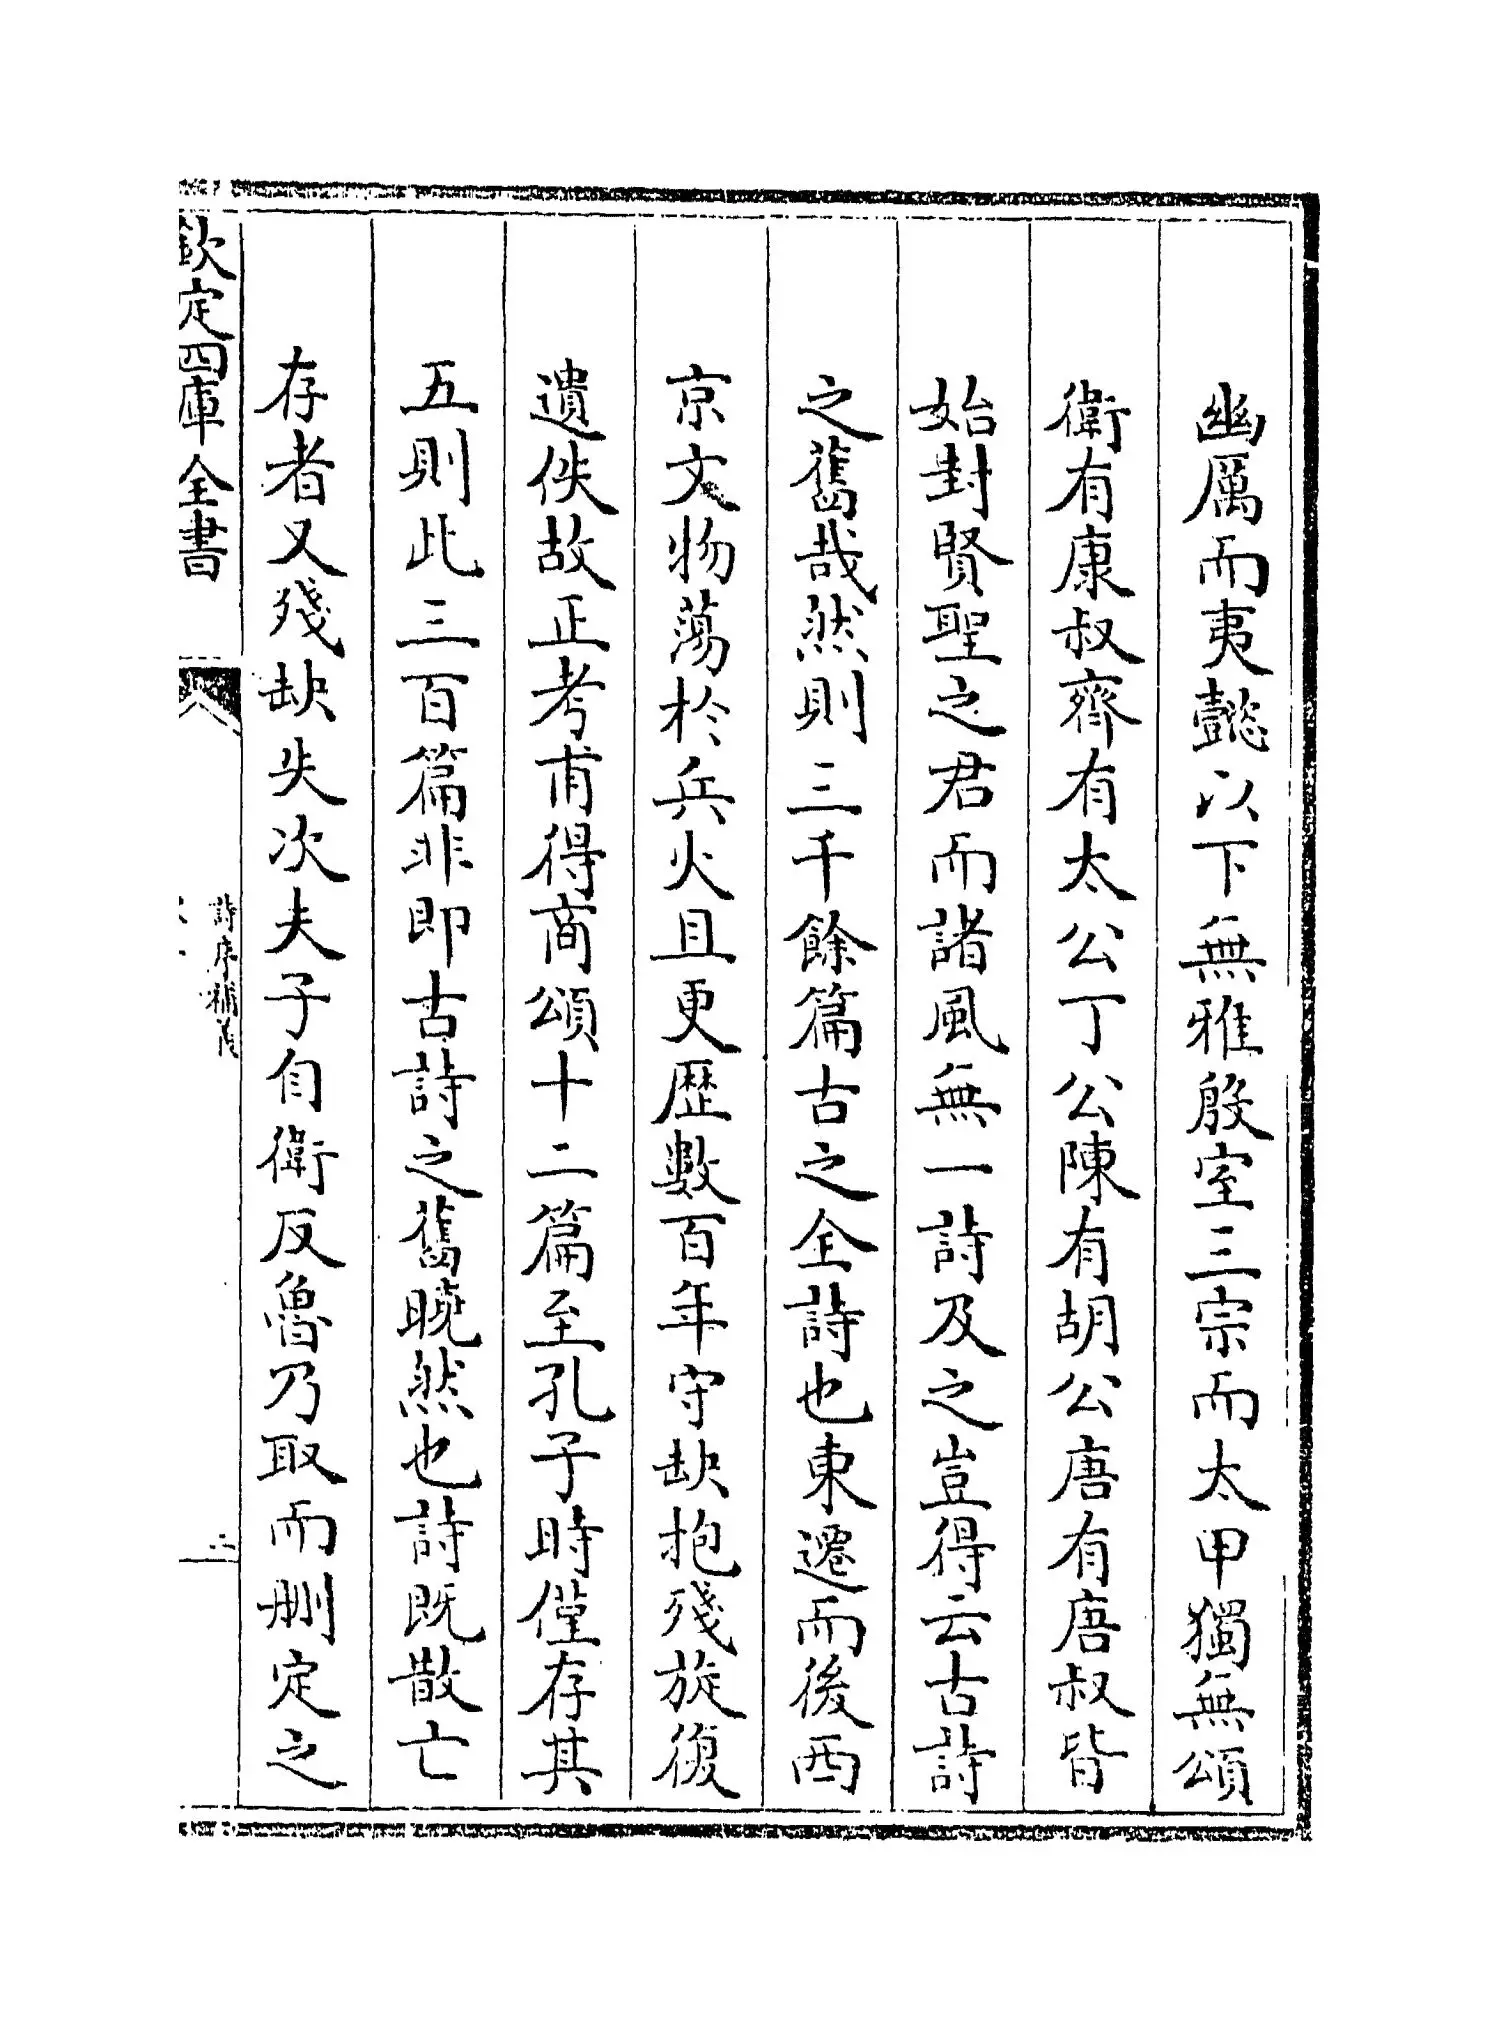 幽厲而夷懿以下無雅殷室三宗而太甲獨無頌
衛有康叔齊有太公丁公陳有胡公唐有唐叔皆
始封賢聖之君而諸風無一詩及之豈得云古詩
之舊哉然則三千餘篇古之全詩也東遷而後西
京文物蕩於兵火且更歷數百年守缺抱殘旋復
遺佚故正考甫得商頌十二篇至孔子時僅存其
五則此三百篇非即古詩之舊曉然也詩既散亡
存者又殘缺失次夫子自衛反魯乃取而刪定之
欽定四庫全書
詩序補義
二